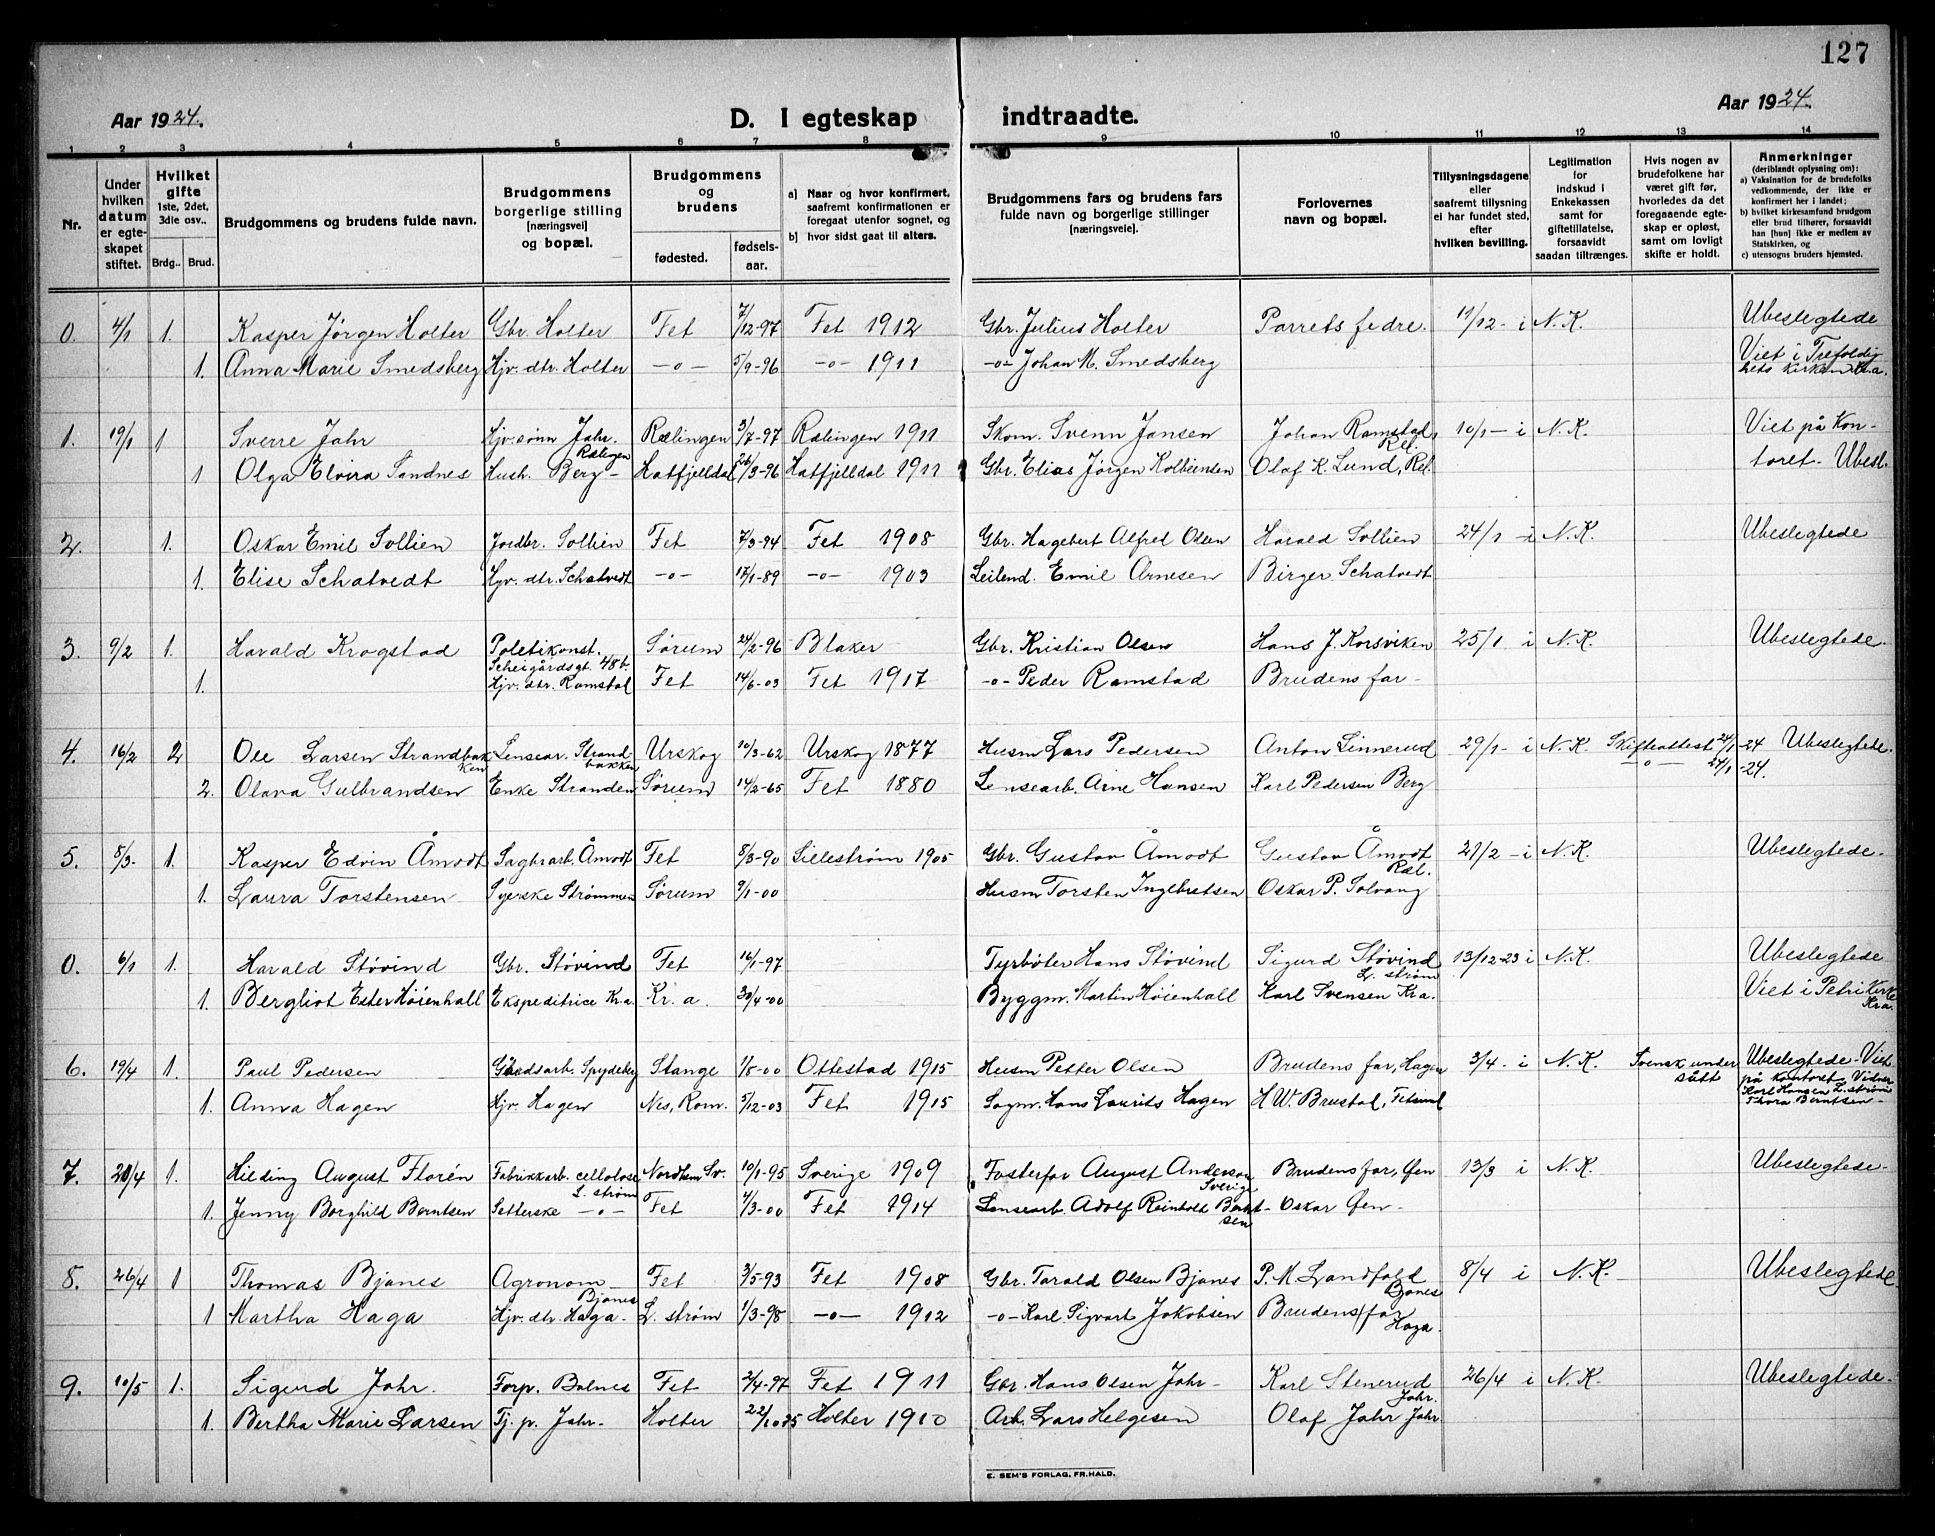 127
Aar 1924.
D. I egteskap indtraadte.
Aar 1924.
1 2 3 4 5 6 7 8 9 10 11 12 13 14
Nr.
Under hvilken datum er egteskapet stiftet.
Hvilket gifte 1ste, 2det, 3die osv..
Brdg.. Brud.
Brudgommens og brudens fulde navn.
Brudgommens borgerlige stilling [næringsvei] og bopæl.
Brudgommens og brudens
fødested.
fødselsaar.
a) Naar og hvor konfirmert, saafremt konfirmationen er foregaat utenfor sognet, og
b) hvor sidst gaat til alters.
Brudgommens fars og brudens fars fulde navn og borgerlige stillinger [næringsveie].
Forlovernes navn og bopæl.
Tillysningsdagene eller saafremt tillysning ei har fundet sted, efter hvilken bevilling.
Legitimation for indskud i Enkekassen samt for giftetillatelse, forsaavidt saadan tiltrænges.
Hvis nogen av brudefolkene har været gift før, hvorledes da det foregaaende egteskap er opløst, samt om lovligt skifte er holdt.
Anmerkninger (deriblandt oplysning om):
a) Vaksination for de brudefolks vedkommende, der ikke er konfirmert her i landet;
b) hvilket kirkesamfund brudgom eller brud tilhører, forsaavidt han [hun] ikke er medlem av Statskirken, og
c) utensogns bruders hjemsted.
0. 4/1 1. Kasper Jørgen Holter Gbr. Holter Fet 7/12-97 Fet 1912 Gbr. Julius Holter Parrets fedre. 11/12- i N.K. Ubeslegtede
1. Anna Marie Smedsberg Hjv. dtr. Holter -o- 5/9-96 -o- 1911 -o- Johan M. Smedsberg Viet i Trefoldighets kirken Kr.a.
1. 19/1 1 Sverre Jahr Hjv. sønn Jahr. Rælingen Rælingen 3/7-97 Rælingen 1911 Skom. Svenn Jansen Johan Ramstad, Ræl. 10/1- i N.K. Viet på Kon-
1 Olga Elvira Sandnes Hush. Berg- Hatfjelldal 26/3-96 Hatfjelldal 1911 Gbr. Elias Jørgen Kolbeinsen Olaf K. Lund, Ræl. toret. Ubesl.
2. 1. Oskar Emil Sollien Jordbr. Sollien Fet 7/3-94 Fet 1908 Gbr. Hagebert Alfred Olsen Harald Sollien 24/1 - i N.K. Ubeslegtede
1. Elise Schatvedt Hjv. dtr. Schatvedt -o- 17/1-89 -o- 1903 Leilend. Emil Arnesen Birger Schatvedt
3. 9/2 1. Harald Krogstad Poletikonst. Scheigårdsgt. 48b. Sørum 24/2-96 Blaker Gbr. Kristian Olsen Hans J. Korsviken 25/1 i N.K. Ubeslegtede.
1. Hjv. dtr. Ramstad Fet 14/6-03 Fet 1917 -o- Peder Ramstad Brudens far-
4. 16/2 2 Ole Larsen Strandbakken Lensear. Strandbakken Urskog 10/3-62 Urskog 1877 Husm Lars Pedersen Anton Linnerud 29/1- i N.K. Skifteattest 24/1-24 Ubeslegtede.
2. Olava Gulbrandsen Enke Stranden Sørum 14/2-65 Fet 1880 Lensearb. Arne Hansen Karl Pedersen Berg -o- 24/1-24.
5. 8/3. 1. Kasper Edvin Åmodt Sagbr.arb. Åmodt Fet 8/3-90 Lillestrøm 1905 Gbr. Gustav Åmodt Gustav Åmodt Ræl. 21/2 - i N.K. Ubeslegtede.
1. Laura Torstensen Syerske Strømmen Sørum 9/1-00 Husm Torsten Ingebretsen Oskar P. Solvang
0. 6/1 1. Harald Støvind Gbr. Støvind Fet 16/1-97 Tyrbøter Hans Støvind Sigurd Støvind L. strøm 13/12-23 i N.K. Ubeslegtede
1. Bergliot Ester Høienhall Ekspeditrice Kr.a. Kr. a. 30/4-00 Byggm. Martin Høienhall Karl Svensen Kra. Viet i Petri Kirke Kra.
6. 19/4 1. Paul Pedersen Gårdsarb. Spydeberg Stange 1/5-00 Ottestad 1915 Husm Petter Olsen Brudens far, Hagen 3/4. i N.K. Svensk undersått Ubeslegtede. Viet på Kontoret. Vidner
1. Anna Hagen Hjv. Hagen Nes, Rom. 5/12-03 Fet 1915 Sagm. Hans Laurits Hagen H W. Brustad, Fetsund Karl Hansen L. strøm Thora Berntsen-
7. 21/4 1. Hilding August Florén Fabrikkarb. cellolose L. strøm Sv. 10/1-95 Sverige 1909 Fosterfar August Anderson Sverige Brudens far, Øen 13/3 i N.K. Ubeslegtede.
1. Jenny Borghild Berntsen Setterske -o- Fet 4/3-00 Fet 1914 Lensearb. Adolf Reinholt Berntsen Oskar Øen-
8. 26/4 1 Thomas Bjanes Agronom Bjanes Fet 3/5-93 Fet 1908 Gbr. Tarald Olsen Bjanes P. M. Landfald Bjanes 8/4 i N.K. Ubeslegtede.
1 Martha Haga Hjv. dtr. Haga. L. strøm 1/3-98 -o- 1912 -o- Karl Sigvart Jakobsen Brudens far Haga.
9. 10/5 1. Sigurd Jahr. Forp. Balnes Fet 2/4-97 Fet 1911 Gbr. Hans Olsen Jahr- Karl Stenerud Jahr. 26/4 i N.K. Ubeslegtede.
1. Bertha Marie Larsen Tj. p. Jahr. Holter 22/10 Holter 1910 Arb. Lars Helgesen Olaf Jahr Jahr.
E. SEM'S FORLAG, FR.HALD.